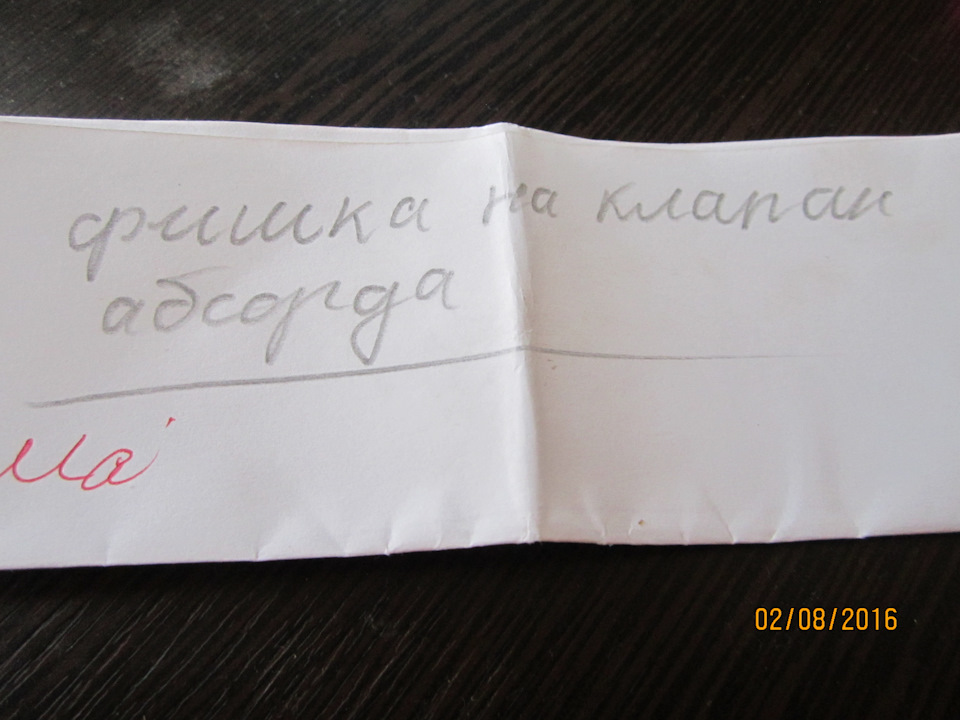 фишка на клапан
абсорда
ма
02/08/2016